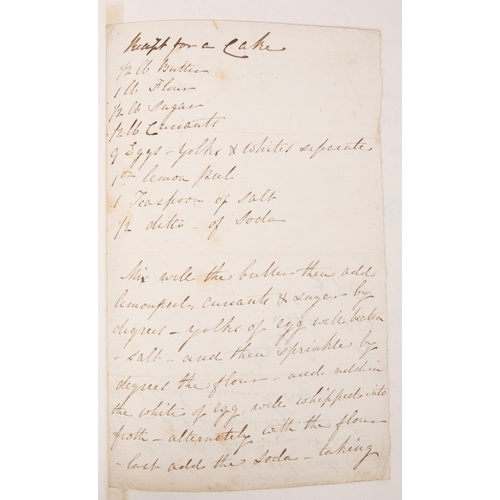 Recpt for a Cake
1/2 lb Butter
1 lb Flour
1/2 lb Sugar
1/2 lb Currants
9 Eggs - yolks & whites separate
1 oz lemon Peel
1 Teaspoon of salt
1/2 ditto - of Soda
Mix well the butter - then add
lemonpeel, currants & sugar - by
degrees - yolks of egg well beaten
- salt - and then sprinkle by
degrees the flour - and add in
the white of egg well whipped into
froth - alternately with the flour
- last add the soda - taking